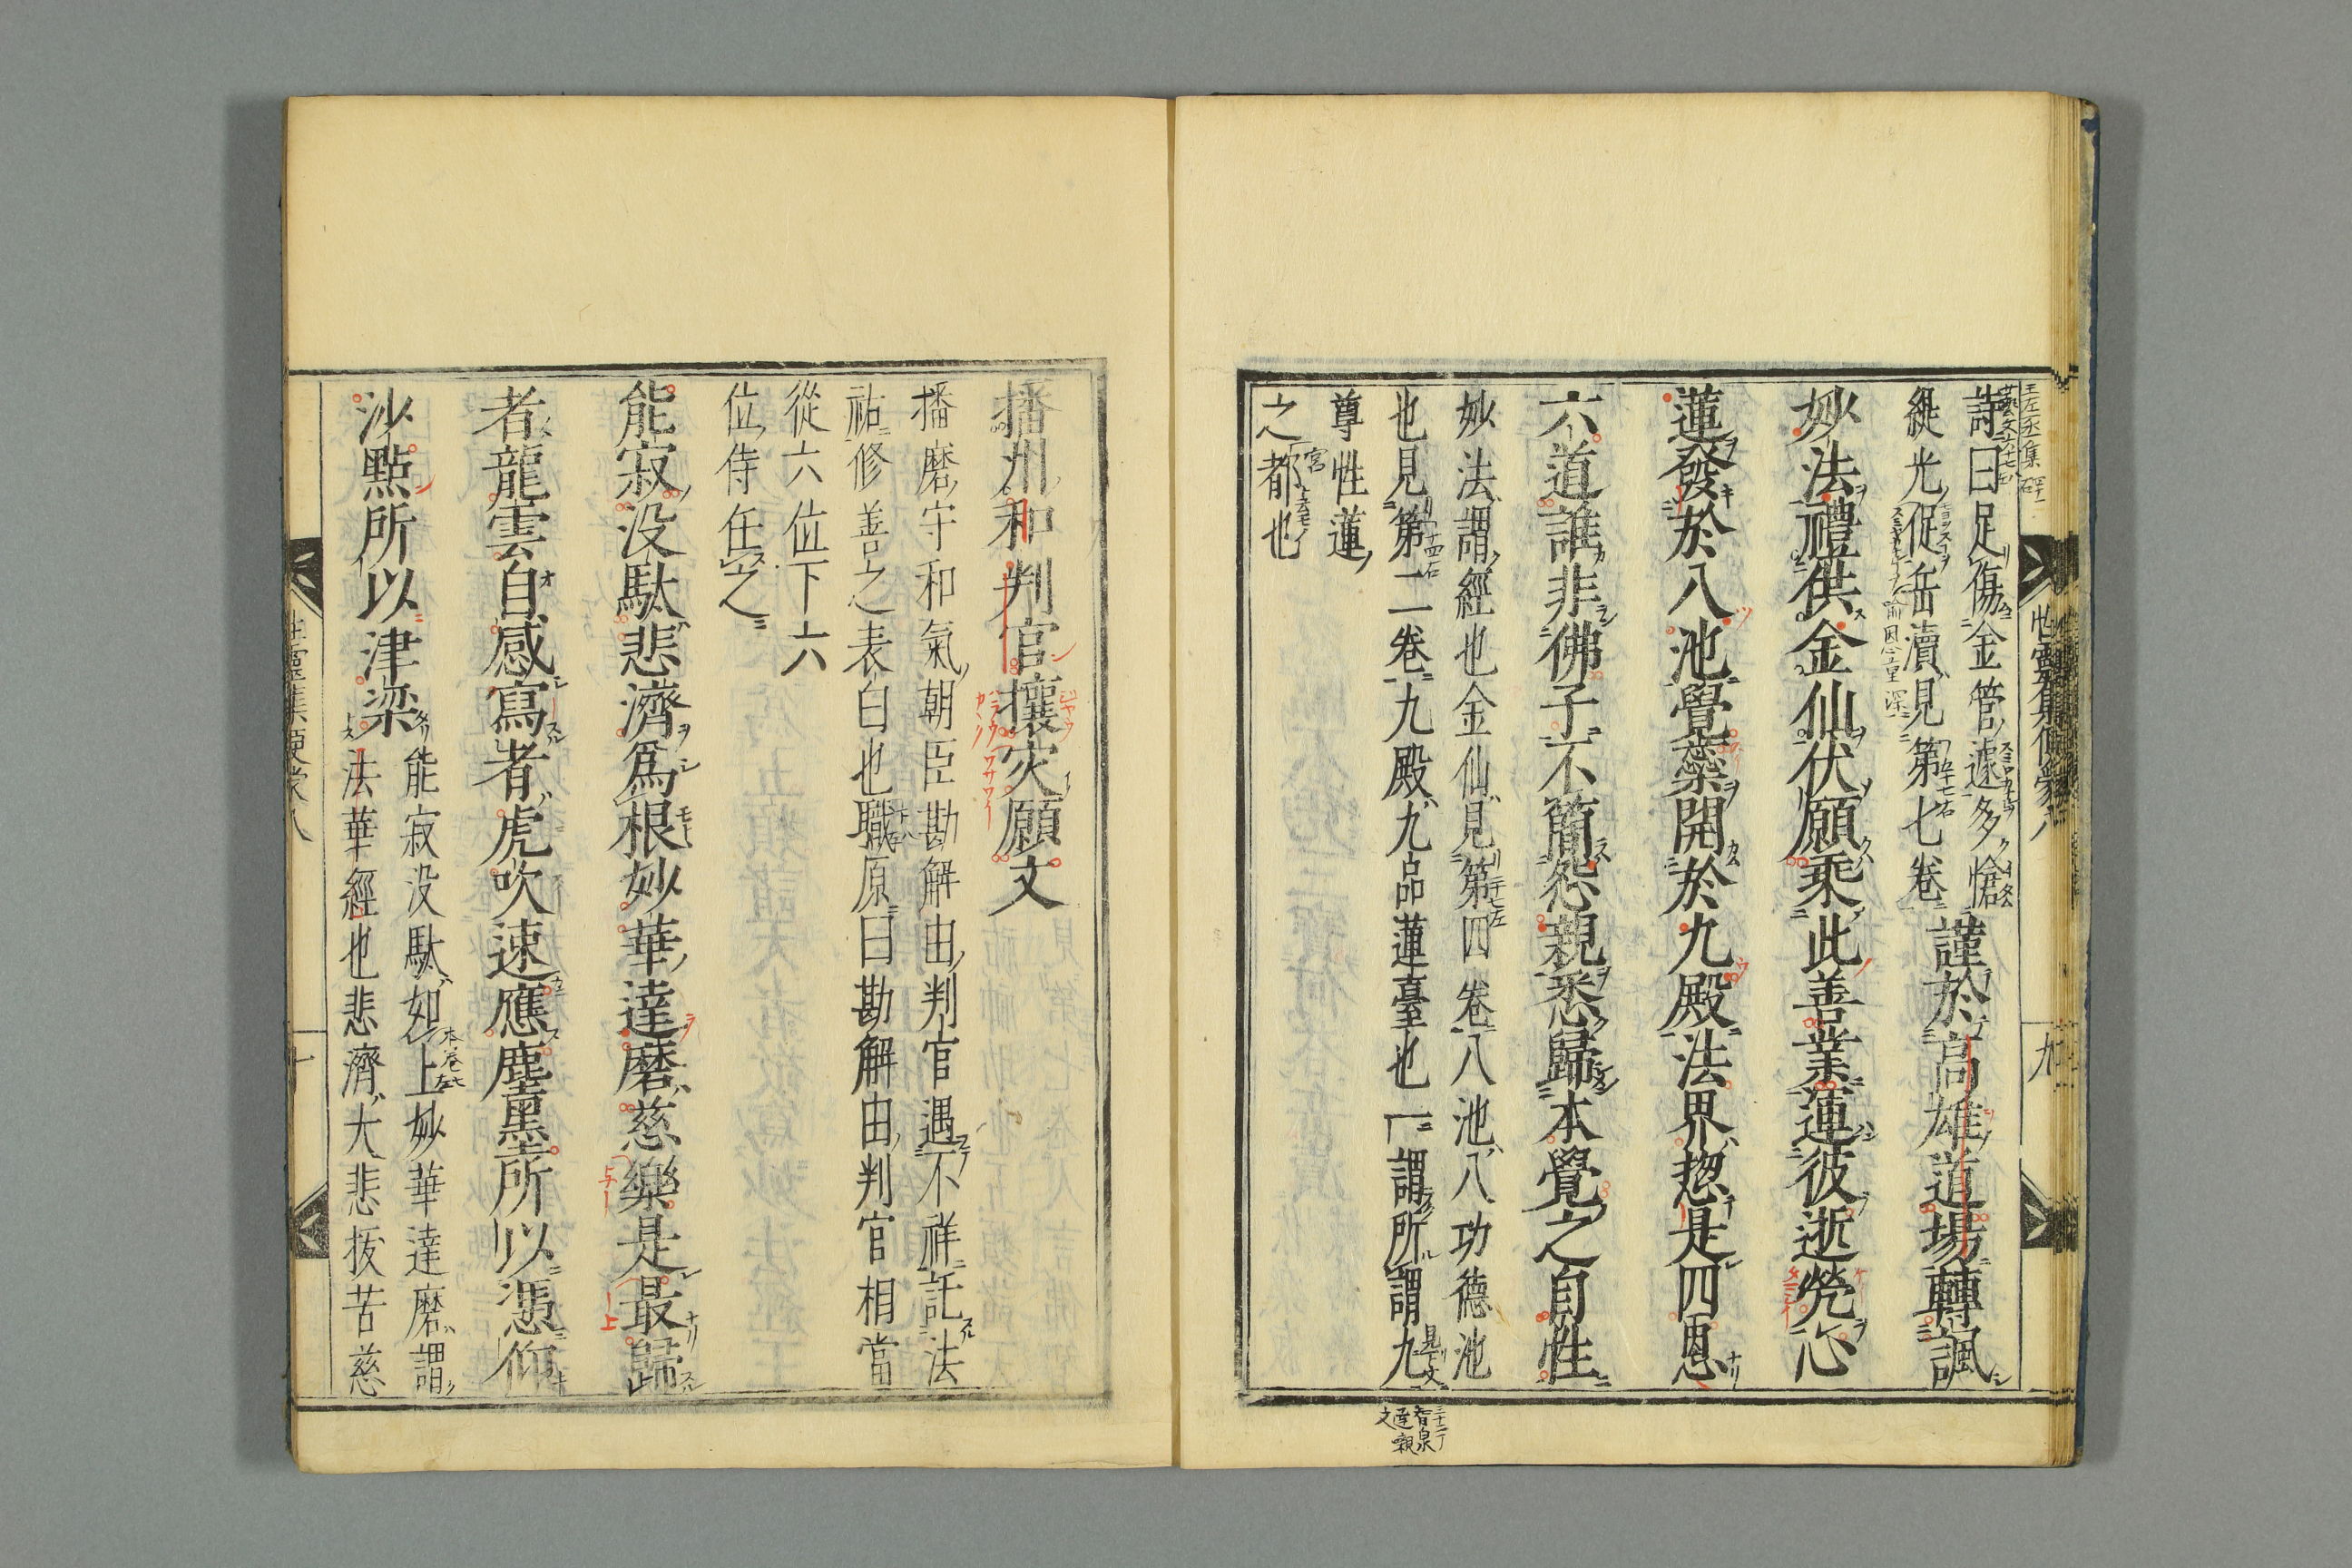 詩曰足傷金管遽多愴
縱光促岳瀆見第七卷
謹於高雄道場轉諷
妙法禮供金仙伏願乘此善業蓮彼逝煢心
蓮發於八池覺蘂開於九殿法界惣是四恩
六道誰非佛子不簡怨親悉歸本覺之自性
妙法謂經也金仙見第四卷八池八功德池
也見第二卷九殿九品蓮臺也一謂所謂九
尊性蓮
之都也
性靈集便蒙八
九
播州和判官攘灾願文
播磨守和氣朝臣勘解由判官遇不祥託法
祐修善之表白也職原曰勘解由判官相當
從六位下六
位侍任之
能寂没馱悲濟爲根妙華達磨慈樂是最歸
者龍雲自感寫者虎吹速應塵墨所以憑仰
沙點所以津梁
能寂没馱如上妙華達磨謂
法華經也悲濟大悲拔苦慈
性靈集便蒙八
十